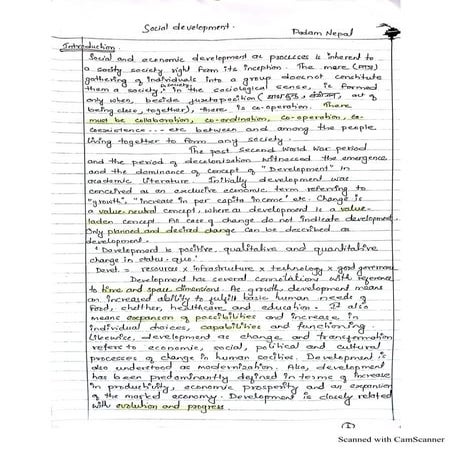 Social development.
Padam Nepal
Introduction
Social and economic development as processes is inherent to
a society right from its inception. The mere
gathering of individuals into a group does not constitute
them a society. In the sociological sense, is formed
only when, beside juxtaposition ( act of
being close, together), there is co-operation. There
must be collaboration, co-ordination, co-operation, co-
coexistence --- etc between and among the people
living together to form any society.
The post Second World War period
and the period of decolonisation witnessed the emergence
and the dominance of concept of "Development" in
academic literature. Initially development was
conceived as an exclusive economic term referring to
"growth", "increase in per capita income" etc. Change is
a value-neutral concept, where as development is a value-
laden concept. As case of change do not indicate development.
Only planned and desired change can be described as
development.
'Development is positive, qualitative and quantitative
change in status-quo.'
Devel. = resources x infrastructure x technology x good governance
Development has several connotations with reference
to time and space dimensions. As growth, development means
an increased ability to fulfill basic human needs of
food, shelter, healthcare and education. It also
means expansion of possibilities and increase in
individual choices, capabilities and functioning.
Likewise, development as change and transformation
refers to economic, social, political and cultural
processes of change in human societies. Development is
also understood as modernisation. Also, development
has been predominantly defined in terms of increase
in productivity, economic prosperity and an expansion
of the market economy. Development is closely related
with evolution and progress.
Scanned with CamScanner